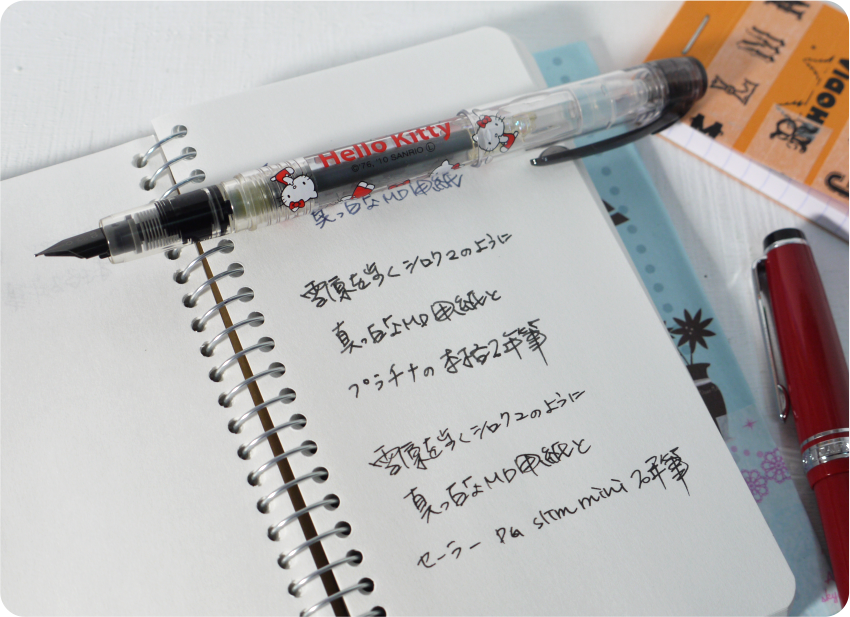 Hello Kitty
©'76,'10 SANRIO
RHODIA
真っ白なMD用紙
雪原を歩くシロクマのように
真っ白なMD用紙と
プラチナの本格万年筆
雪原を歩くシロクマのように
真っ白なMD用紙と
セーラー slim mini 万年筆